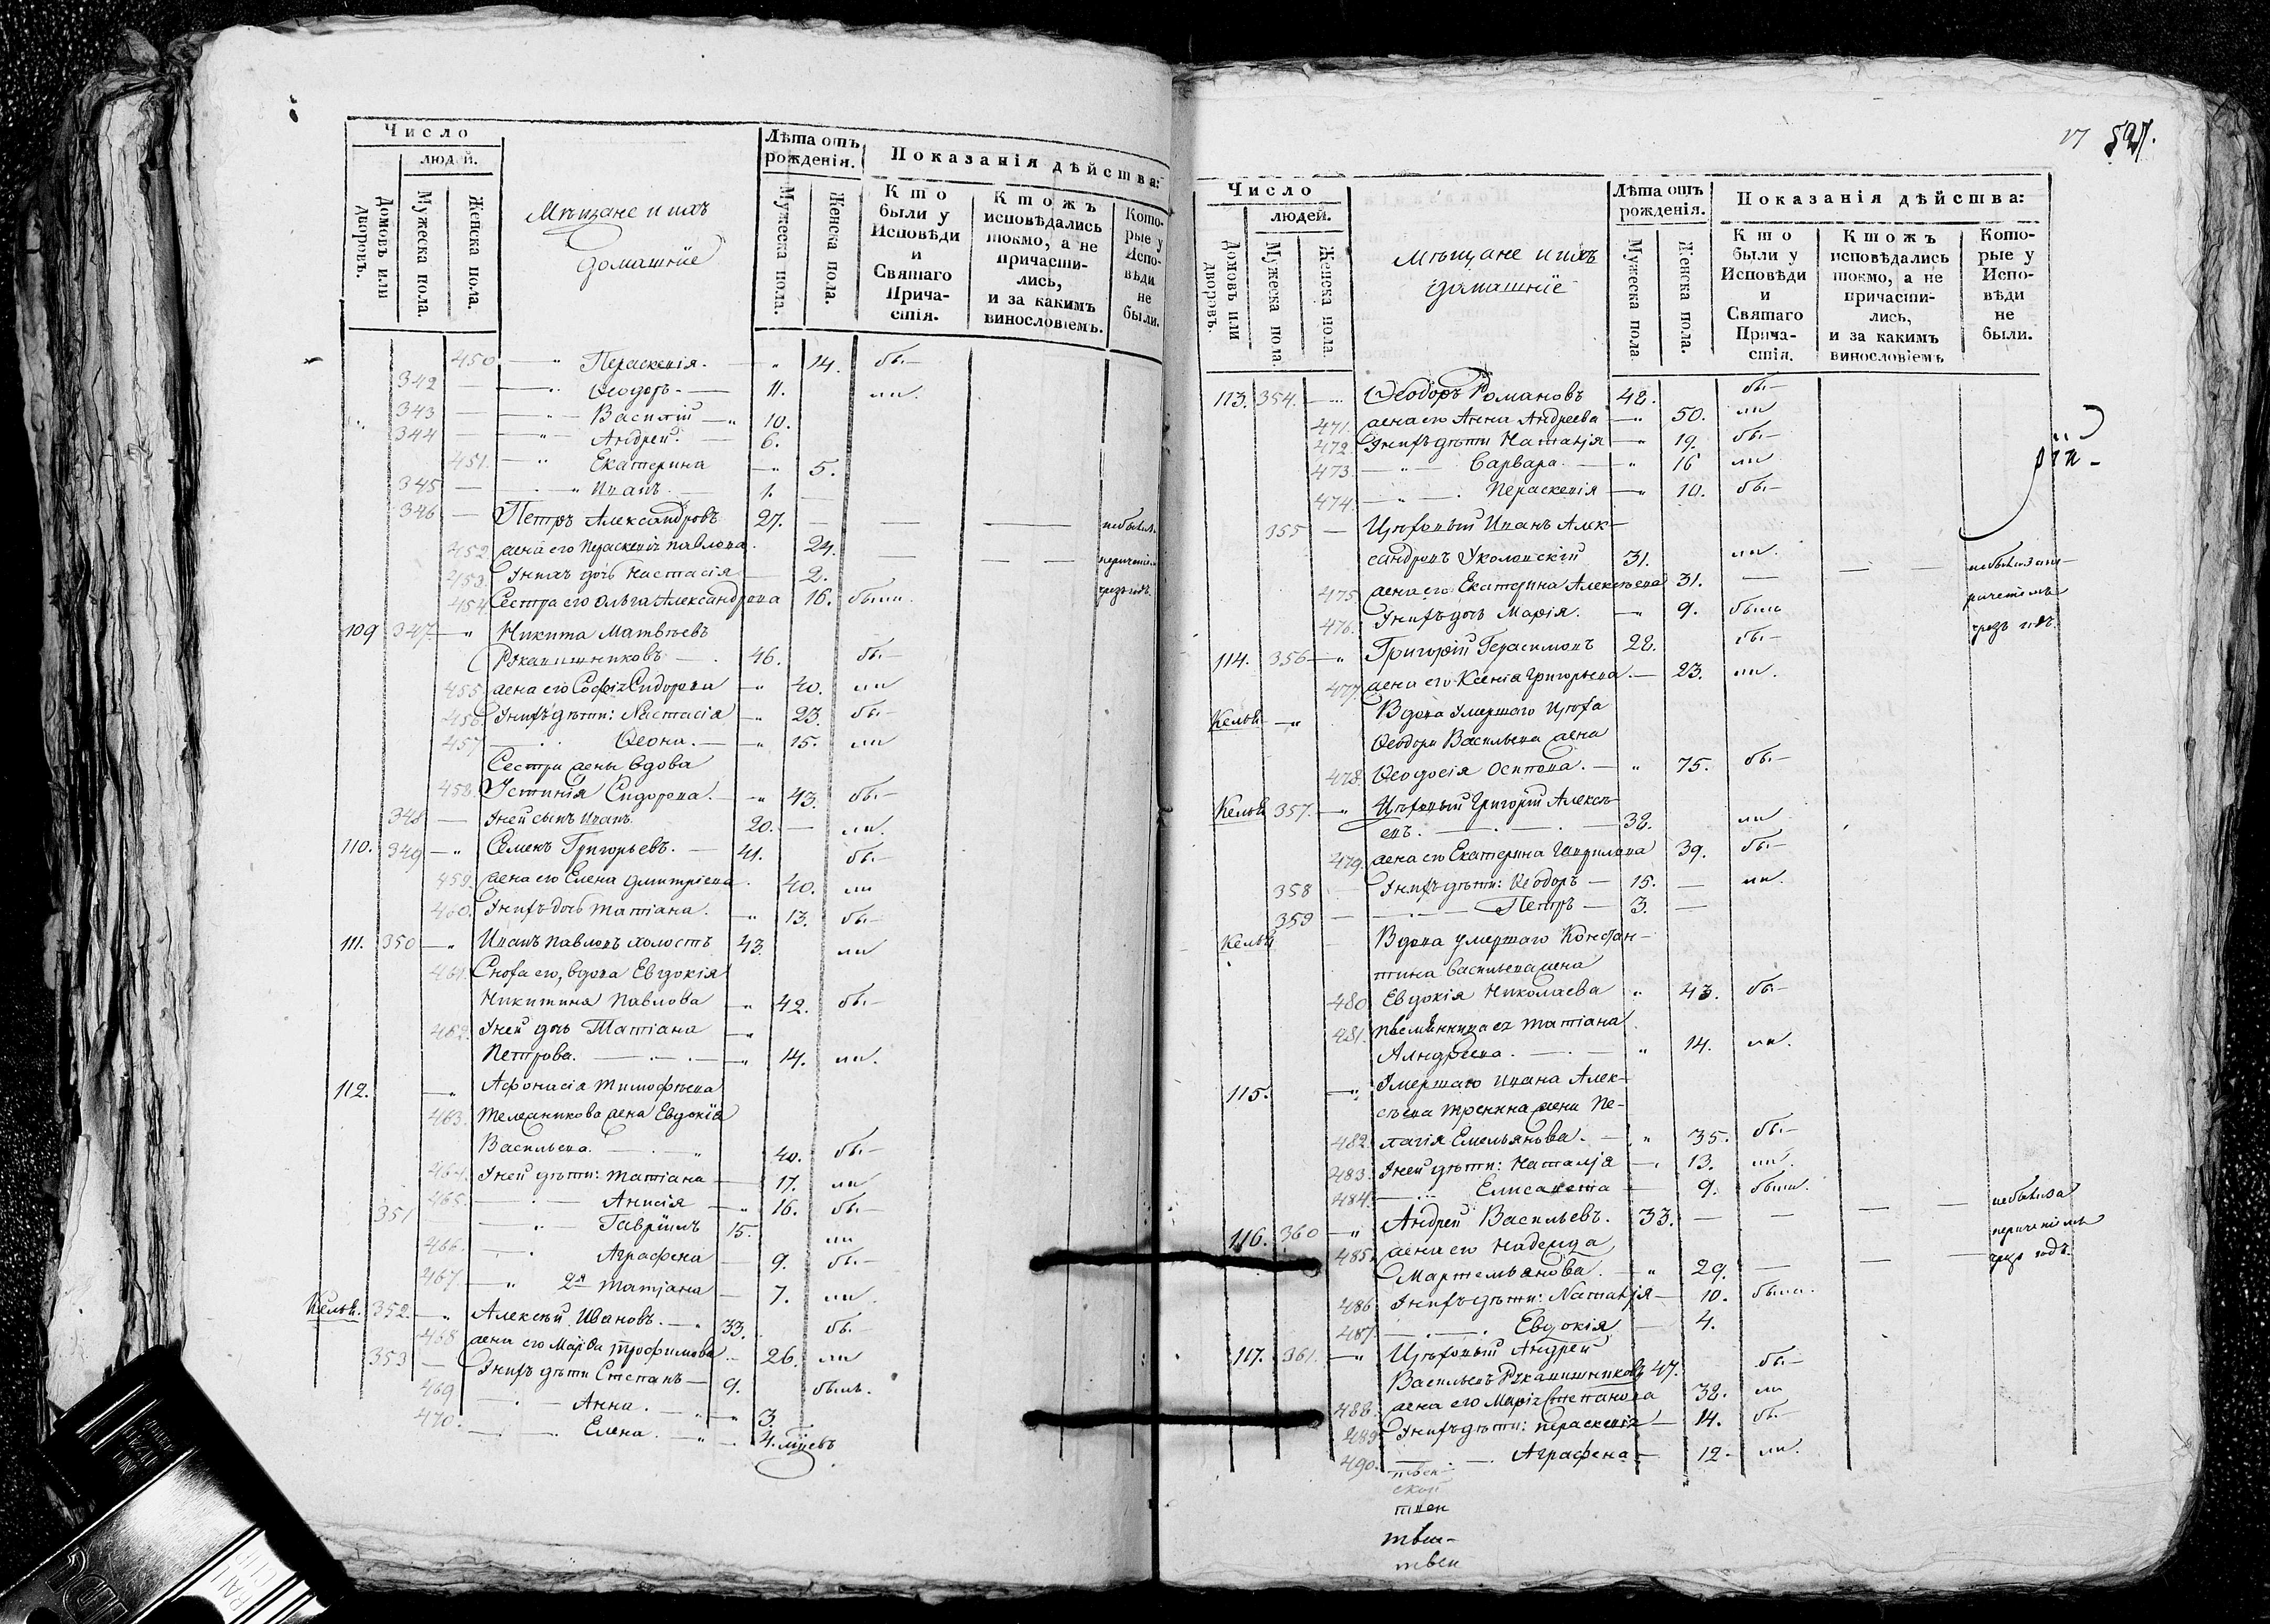 Число
людей.
Домовъ или дворовъ.
Мужеска пола.
Женска пола.
Мѣщане и ихъ
домашнїе
Лѣта отъ
рожденія.
Мужеска пола.
Женска пола.
Показанія дѣйства:
Кто
были у
Исповѣди
и
Святаго
Прича-
стія.
Ктожъ
исповѣдались
токмо, а не
причасти-
лись,
и за какимъ
винословіемъ.
Кото-
рые у
Испо-
вѣди
не
были.
450 — " Пераскевія. — " 14. бы—
342 — — " Ѳеодоръ — 11. ли.
343 — — " Василій — " 10.
344 — — " Андрей — 6.
451. — " Екатерина — " 5.
345 — — " Иванъ — 1. —
346 — Петръ Александровъ 27. — — — небыли
452. жена его Пераскевія Павлова. 24. — — —
453. Унихъ дочь Настасія 2.
454 Сестра его Ольга Александрова 16. были.
109 347 — " Никита Матвѣевъ
Рукавишниковъ — . 46. бы—
455. жена его Софія Сидорова — " 40. ли
456. Унихъ дѣти: Настасія — " 23. бы—
457 — . Ѳеона. — " 15. ли
Сестра жены вдова
458. Устинія Сидорова. — " 43. бы—
348 — Уней сынъ Иванъ 20. — ли.
110. 349 — " Семенъ Григорьевъ. — 41. бы—
459. жена его Елена Дмитріева. 40. ли
460. Унихъ дочь Татіана. — " 13. бы—
111. 350 — " Иванъ Павловъ холостъ 43. ли
461. Сноха его, вдова Евдокія
Никитина Павлова — " 42. бы—
462. Уней дочь Татіана — "
Петрова. — . — . — " 14. ли.
112. — " Афонасія Тимофѣева
463. жена Евдокїя
Васильева. — . — " 40. бы—
464. Уней дѣти: Татіана — 17. ли
465. — . — Анисія — " 16. бы—
351 — " — Гаврїилъ 15. ли
466. — . Аграфена — 9. бы—
467. — " 2я Татіана — 7. ли.
Кельи. 352. — " Алексѣй Ивановъ. — " 33. бы—
468 жена его Марѳа Трофимова — 26. ли
353 — Унихъ дѣти Степанъ — 9. былъ.
469 — . — Анна. — " — " 3.
470. — . — Елена. — " — . 4. мцевъ
17 527.
Число
людей.
Домовъ или дворовъ.
Мужеска пола.
Женска пола.
Мѣщане и ихъ
домашнїе
Лѣта отъ
рожденія.
Мужеска пола
Женска пола.
Показанія дѣйства:
Кто
были у
Исповѣди
и
Святаго
Прича-
стія.
Ктожъ
исповѣдались
токмо, а не
причасти-
лись,
и за какимъ
винословіемъ
Кото-
рые у
Испо-
вѣди
не
были.
113. 354. — Ѳеодоръ Романовъ 48. бы—
471. жена его Анна Андреева — " 50. ли
472. Унихъ дѣти Наталія — " 19. бы—
473 — " — Варвара. — " 16 ли
474. — " — . Пераскевія — " 10. бы—
355 — Цѣховый Иванъ Алек-
сандровъ 31. ли.
475 жена его Екатерина Алексѣева 31. — — —
476. Унихъ дочь Марія. — " 9. была
чрезъ годъ
114. 356 — " Григорій Герасимовъ 28. бы—
477. жена его Ксенія Григорьева. — 23. ли.
Кельи — " Вдова умершаго цѣха
Ѳеодора Васильева жена
478. Ѳеодосія Осипова. — " 75. бы—
Кельи 357. — " Цѣховый Григорій Алексѣ-
евъ. — . — . — 38. ли
479. жена его Екатерина Гаврилова 39. бы—
358 — Унихъ дѣти: Ѳеодоръ — 15. — ли.
359 — — . — Петръ — 3. —
Кельи — Вдова умершаго Констан-
тина Васильева жена
480 Евдокія Николаева " 43. бы—
481. племянница ея Татіана
Андреева. — . — " 14. ли.
115. — " Умершаго Ивана Алек-
сѣева жена Пе-
482. лагія Емельянова. — " 35. бы—
483. Уней дѣти: Наталія — . 13. ли.
484. — " Елисавета — 9. были.
116. 360 — " Андрей Васильевъ. 33. — — — — небылиза
485. жена его Надежда
Мартемьянова. — " 29. — — — чрезъ годъ.
486 Унихъ дѣти: Наталія — 10. была.
487. — . — . Евдокія — 4.
117. 361. — " Цѣховый Андрей
Васильевъ Рукавишниковъ 47. бы—
488. жена его Марія Степанова 38. ли
489. Унихъ дѣти: Пераскевія — 14. бы—
490. — . — . Аграфена — 12 — ли.